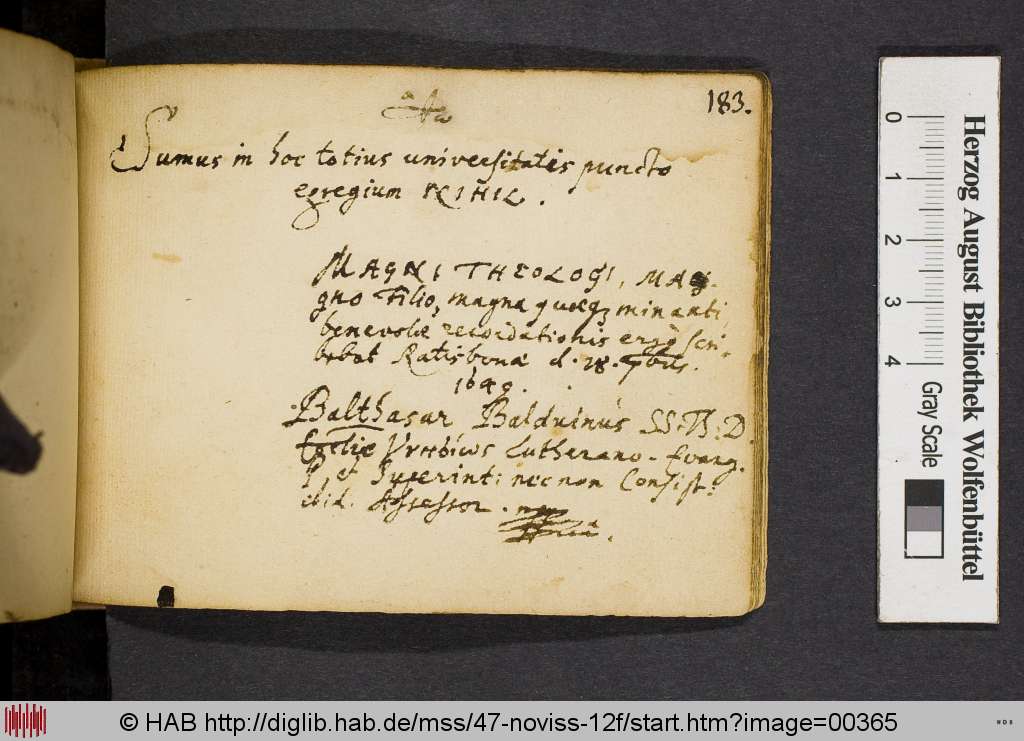 183.
Sumus in hoc totius universitatis puncto
egregium NIHIL.
MAGNI THEOLOGI, MA-
gno Filio, magna quæq; minanti,
benevolæ recordationis ergò scri-
bebat Ratisbonæ d. 28. 7bris.
1649.
Balthasar Balduinus SS. Th: D.
Eccliæ Urbicus Lutherano-Evang.
P. et Superint: nec non Consist:
ibid. Assessor.
0 1 2 3 4
Herzog August Bibliothek Wolfenbüttel
Gray Scale
© HAB http://diglib.hab.de/mss/47-noviss-12f/start.htm?image=00365